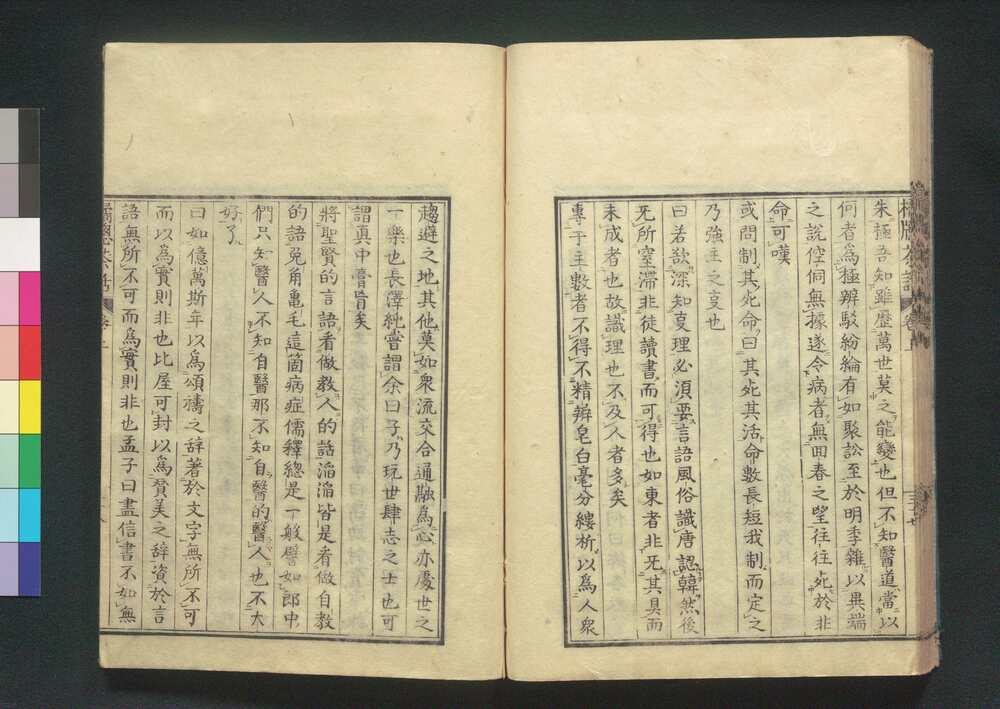 朱極吾知雖歷萬世莫之能變也但不知醫道當以
何者為極辨駁紛綸有如聚訟至於明季雜以異端
之說倥侗無據遂令病者無回春之望往往死於非
命可嘆
或問制其死命曰其死其活命數長短我制而定之
乃強主之叓也
曰若欲深知叓理必須要言語風俗識唐認韓然後
旡所窒滯非徒讀書而可得也如東者非旡其具而
未成者也故識理也不及人者多矣
專于主數者不得不精辨皂白毫分縷析以為人衆
趨避之地其他莫如衆流交合通融為心亦處世之
一樂也長澤純嘗謂余曰子乃玩世肆志之士也可
謂真中膏肓矣
將聖賢的言語看做教人的話滔滔皆是看做自教
的語兔角亀毛這箇病症儒釋緫是一般譬如郎中
們只知醫人不知自醫那不知自醫的醫人也不大
好了
曰如億萬斯年以為頌禱之辞著於文字無所不可
而以為實則非也比屋可封以為賛美之辞資於言
語無所不可而為實則非也孟子曰盡信書不如無